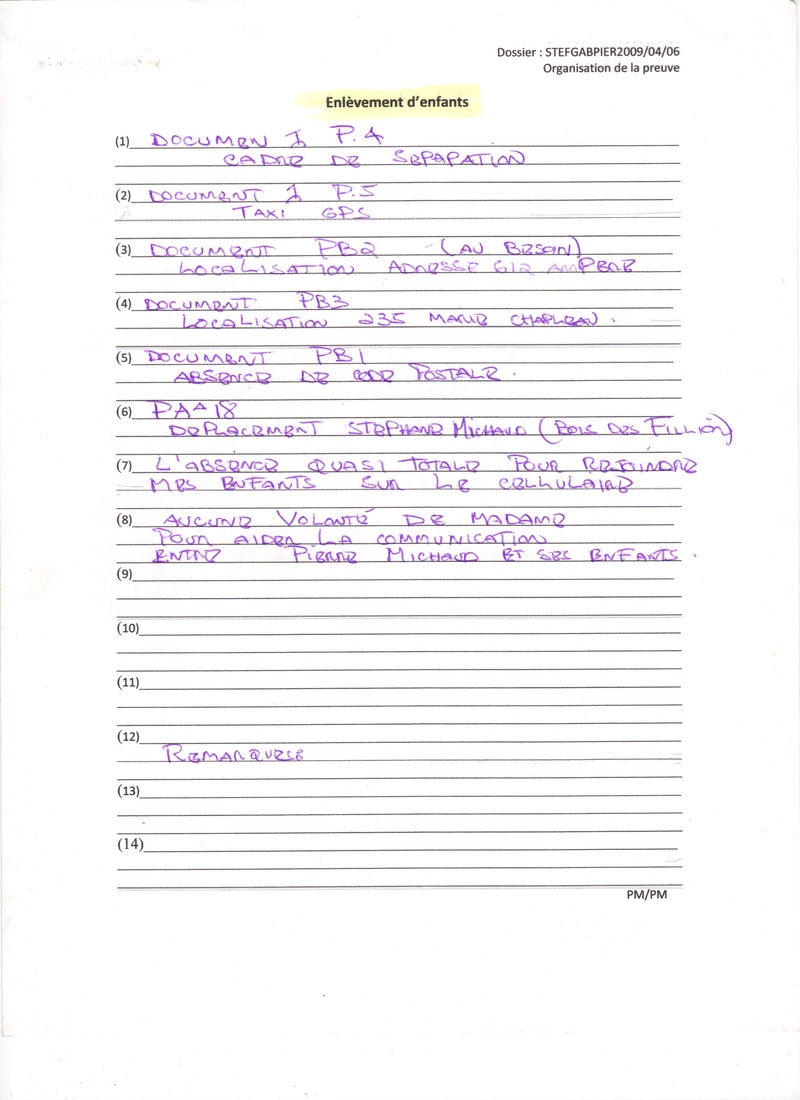 Dossier : STEFGABPIER2009/04/06
Organisation de la preuve
Enlèvement d'enfants
(1) DOCUMEN 1 P.4
CADRE DE SEPAPATION
(2) DOCUMENT 1 P.5
TAXI GPS
(3) DOCUMENT PB2 (AU BESOIN)
LOCALISATION ADRESSE 612 AMPERE
(4) DOCUMENT PB3
LOCALISATION 235 MARIE CHAPLEAU.
(5) DOCUMENT PB1
ABSENCE DE CODE POSTALE.
(6) PA^18
DEPLACEMENT STEPHANE MICHAUD (BOIS DES FILLION)
(7) L'ABSENCE QUASI TOTALE POUR REJOINDRE
MES ENFANTS SUR LE CELLULAIRE
(8) AUCUNE VOLONTÉ DE MADAME
POUR AIDER LA COMMUNICATION
ENTRE PIERRE MICHAUD ET SES ENFANTS.
(9)
(10)
(11)
(12)
REMARQUESE
(13)
(14)
PM/PM